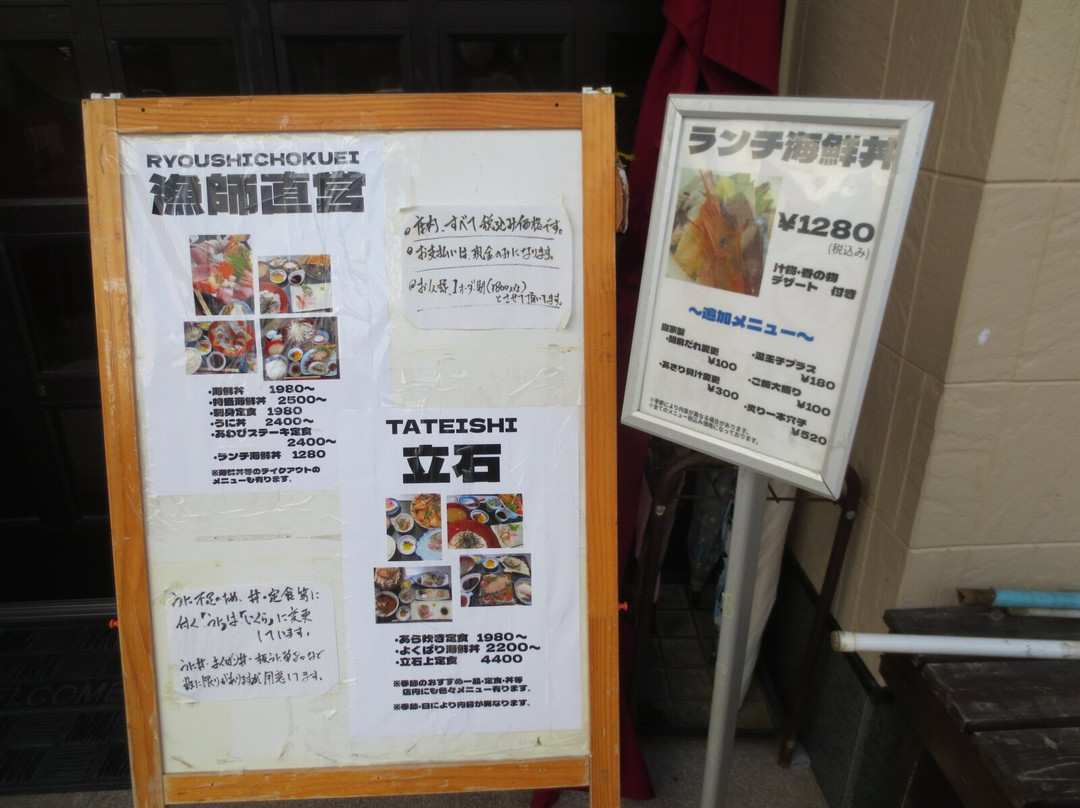 RYOUSHICHOKUEI
漁師直営
・海鮮丼 1980〜
・特盛海鮮丼 2500〜
・刺身定食 1980
・うに丼 2400〜
・あわびステーキ定食
2400〜
・ランチ海鮮丼 1280
※海鮮丼等のテイクアウトの
メニューも有ります。
店内、すべて税込み価格です。
お支払いは、現金のみになります。
とさせて頂いてます。
TATEISHI
立石
・あら炊き定食 1980〜
・よくばり海鮮丼 2200〜
・立石上定食 4400
※季節のおすすめ一品・定食・丼等
店内にも色々メニュー有ります。
※季節・日により内容が異なります。
うに不足のため、丼・定食等に
付く「うに」は「いくら」に変更
しています。
数に限りがありますが用意してます。
ランチ海鮮丼
¥1280
(税込み)
汁物・香の物
デザート 付き
〜追加メニュー〜
自家製
・胡麻だれ変更
¥100
・あさり貝汁変更
¥300
・温玉子プラス
¥180
・ご飯大盛り
¥100
・炙り一本穴子
¥520
※季節により内容が異なる場合があります。
※全てのメニュー税込み価格になっております。
WELCOME